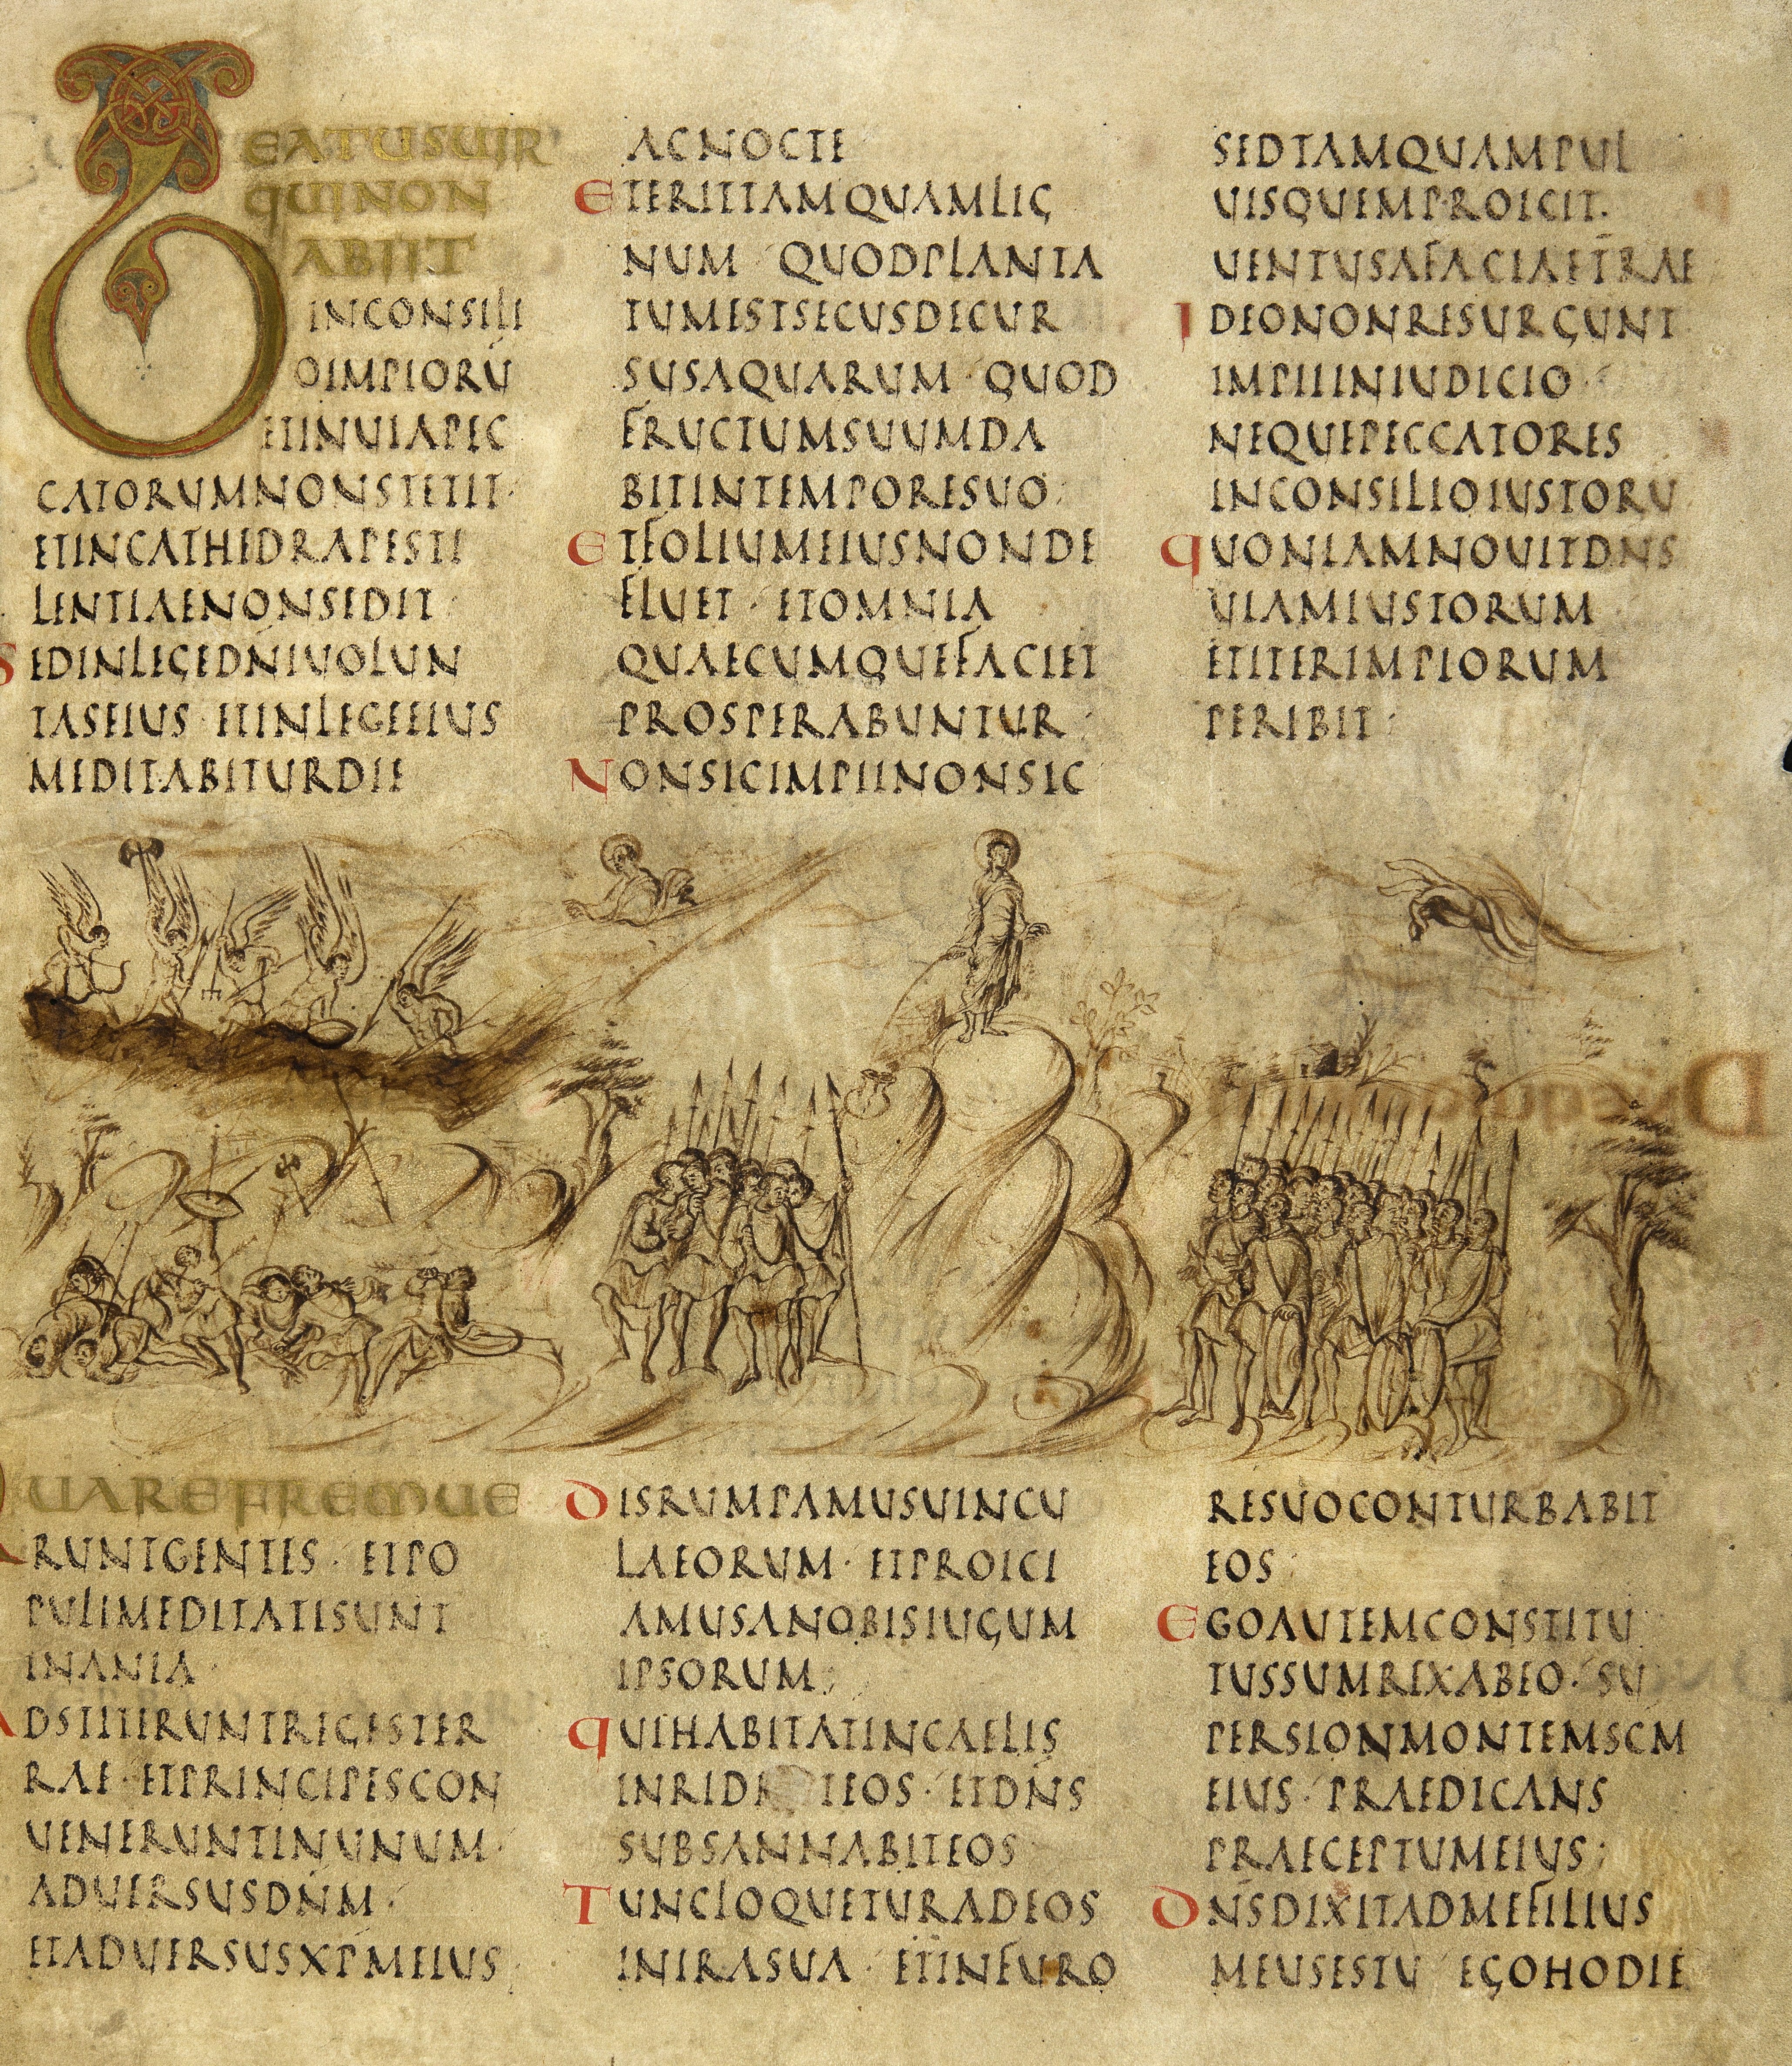 BEATUSUIR
QUINON
ABIIT
INCONSILI
OIMPIORŪ
ETINUIAPEC
CATORUMNONSTETIT·
ETINCATHEDRAPESTI
LENTIAENONSEDIT·
SEDINLEGEDN̄IUOLUN
TASEIUS·ETINLEGEEIUS
MEDITABITURDIE
ACNOCTE
ETERITTAMQUAMLIG
NUM QUODPLANTA
TUMESTSECUSDECUR
SUSAQUARUM·QUOD
FRUCTUMSUUMDA
BITINTEMPORESUO;
ETFOLIUMEIUSNONDE
FLUET·ETOMNIA
QUAECUMQUEFACIET
PROSPERABUNTUR;
NONSICIMPIINONSIC
SEDTAMQUAMPUL
UISQUEMPROICIT·
UENTUSAFACIAETĒRAE
IDEONONRESURGUNT
IMPIIINIUDICIO·
NEQUEPECCATORES
INCONSILIOIUSTORU
QUONIAMNOUITDNS
UIAMIUSTORUM
ETITERIMPIORUM
PERIBIT;
QUAREFREMUE
RUNTGENTES·ETPO
PULIMEDITATISUNT
INANIA·
ADSTITERUNTREGESTER
RAE·ETPRINCIPESCON
UENERUNTINUNUM·
ADUERSUSDN̄M·
ETADUERSUSXPMEIUS;
DISRUMPAMUSUINCU
LAEORUM·ETPROICI
AMUSANOBISIUGUM
IPSORUM;
QUIHABITATINCAELIS
EOS·ETDN̄S
SUBSANNABITEOS
TUNCLOQUETURADEOS
INIRASUA·ETINFURO
RESUOCONTURBABIT
EOS;
EGOAUTEMCONSTITU
TUSSUMREXABEO·SU
PERSIONMONTEMSCM
EIUS·PRAEDICANS
PRAECEPTUMEIUS;
DN̄SDIXITADMEFILIUS
MEUSESTU·EGOHODIE